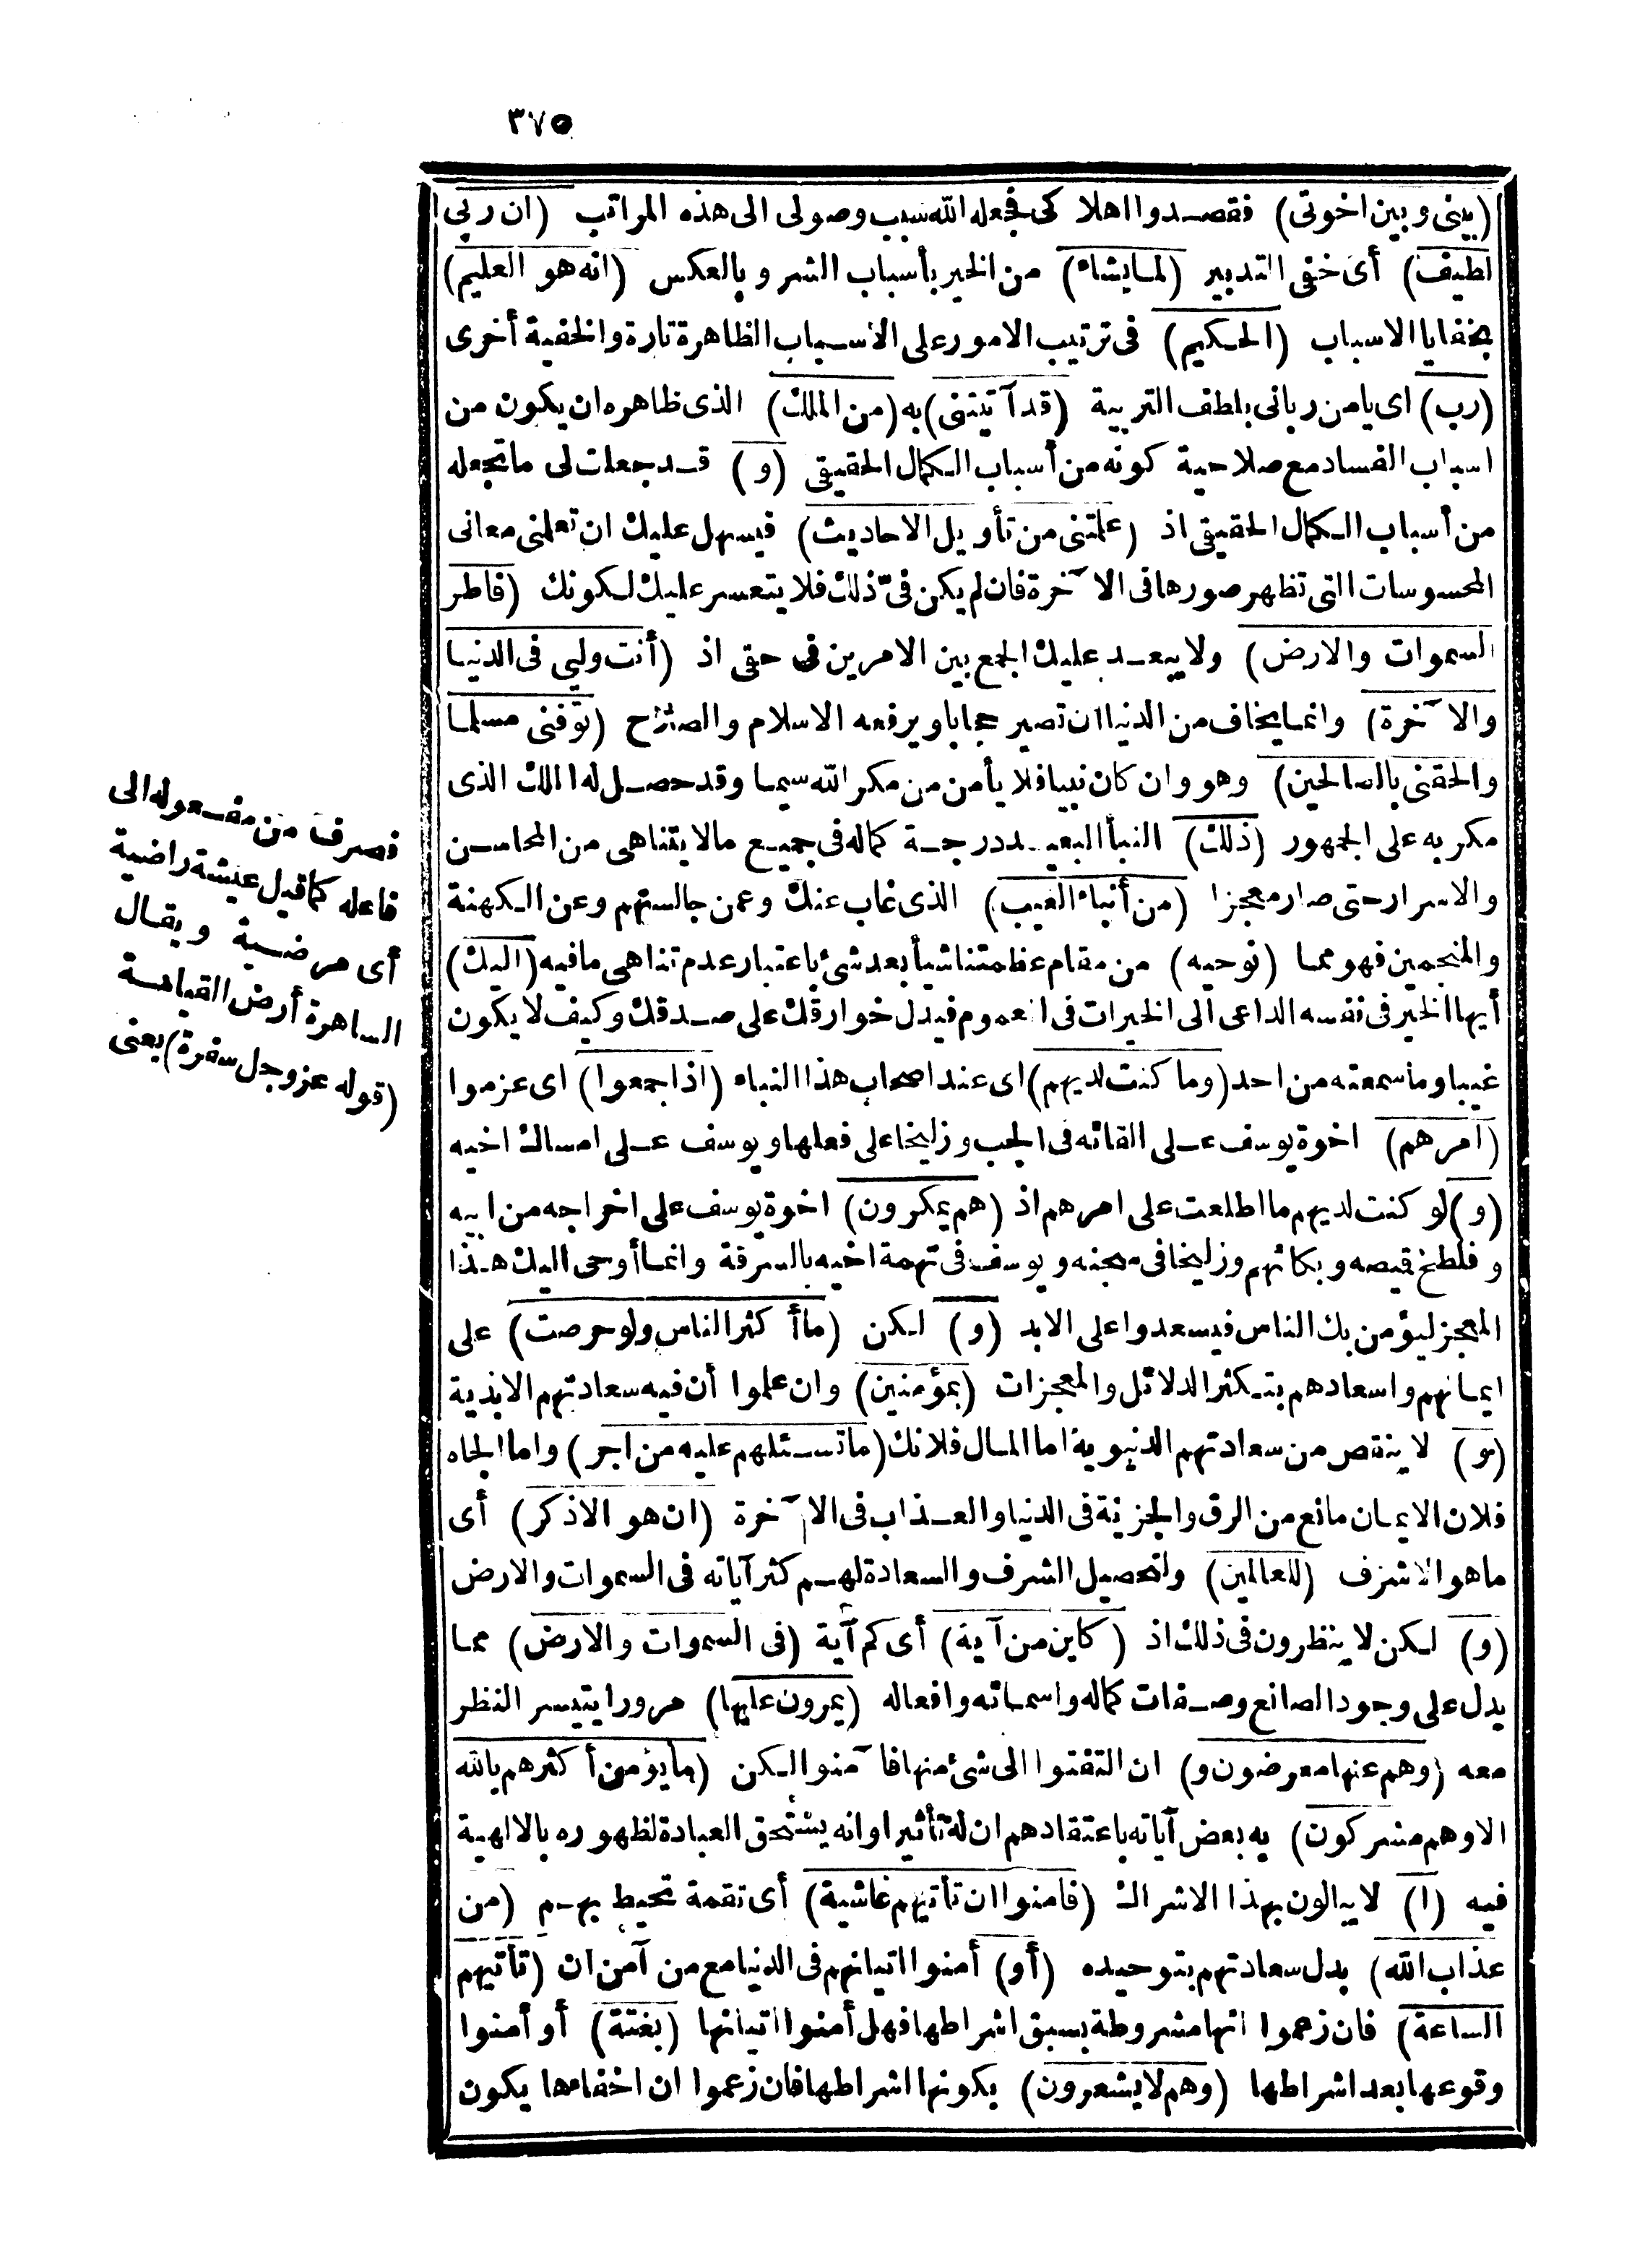 ٣٧٥
(بينى وبين اخوتى) فقصدوا اهلاكى فجعله الله سبب وصولى الى هذه المراتب (ان ربى
لطيف) أى خفى التدبير (لما يشاء) من الخير بأسباب الشر وبالعكس (انه هو العليم)
بخفايا الاسباب (الحكيم) فى ترتيب الامور على الاسباب الظاهرة تارة والخفية أخرى
(رب) اى يامن ربانى بلطف التربية (قد آتيتنى) به (من الملك) الذى ظاهره ان يكون من
اسباب الفساد مع صلاحية كونه من أسباب الكمال الحقيقى (و) قد جعلت لى ما تجعله
من أسباب الكمال الحقيقى اذ (علمتنى من تأويل الاحاديث) فيسهل عليك ان تعلمنى معانى
المحسوسات التى تظهر صورها فى الآخرة فان لم يكن فىّ ذلك فلا يتعسر عليك لكونك (فاطر
السموات والارض) ولا يبعد عليك الجمع بين الامرين فى حقى اذ (أنت وليى فى الدنيا
والآخرة) وانما يخاف من الدنيا ان تصير حجابا ويرفعه الاسلام والصلاح (توفنى مسلما
والحقنى بالصالحين) وهو وان كان نبيا فلا يأمن من مكر الله سيما وقد حصل له الملك الذى
مكر به على الجمهور (ذلك) النبأ البعيد درجة كماله فى جميع مالا يتناهى من المحاسن
والاسرار حتى صار معجزا (من أنباء الغيب) الذى غاب عنك وعمن جالستهم وعن الكهنة
والمنجمين فهو مما (نوحيه) من مقام عظمتنا شيأ بعد شئ باعتبار عدم تناهى ما فيه (اليك)
أيها الخير فى نفسه الداعى الى الخيرات فى العموم فيدل خوارقك على صدقك وكيف لا يكون
غيبا وما سمعته من احد (وما كنت لديهم) اى عند اصحاب هذا النباء (اذ اجمعوا) اى عزموا
(امرهم) اخوة يوسف على القائه فى الجب وزليخا على فعلها ويوسف على امساك اخيه
(و) لو كنت لديهم ما اطلعت على امرهم اذ (هم يمكرون) اخوة يوسف على اخراجه من ابيه
و فلطخ قميصه وبكائهم وزليخا فى سجنه ويوسف فى تهمة اخيه بالسرقة وانما أوحى اليك هذا
المعجز ليؤمن بك الناس فيسعدوا على الابد (و) لكن (ما أكثر الناس ولو حرصت) على
ايمانهم واسعادهم بتكثر الدلائل والمعجزات (بمؤمنين) وان علموا أن فيه سعادتهم الابدية
(و) لا ينقص من سعادتهم الدنيوية اما المال فلانك (ما تسئلهم عليه من اجر) واما الجاه
فلان الايمان مانع من الرق والجزية فى الدنيا والعذاب فى الآخرة (ان هو الا ذكر) أى
ما هو الا شرف (للعالمين) ولتحصيل الشرف والسعادة لهم كثر آياته فى السموات والارض
(و) لكن لا ينظرون فى ذلك اذ (كاين من آية) أى كم آية (فى السموات والارض) مما
يدل على وجود الصانع وصفات كماله واسمائه وافعاله (يمرون عليها) مرورا يتيسر النظر
معه (وهم عنها معرضون و) ان التفتوا الى شئ منها فآمنوا لكن (ما يؤمن أكثرهم بالله
الا وهم مشركون) به بعض آياته باعتقادهم ان له تأثيرا وانه يستحق العبادة لظهوره بالالهية
فيه (ا) لا يبالون بهذا الاشراك (فامنوا ان تأتيهم غاشية) أى نقمة تحيط بهم (من
عذاب الله) بدل سعادتهم بتوحيده (أو) أمنوا اتيانهم فى الدنيا مع من آمن ان (تأتيهم
الساعة) فان زعموا انها مشروطة بسبق اشراطها فهل أمنوا اتيانها (بغتة) أو أمنوا
وقوعها بعد اشراطها (وهم لا يشعرون) بكونها اشراطها فان زعموا ان اخفاءها يكون
فصرف من مفعوله الى
فاعله كما قيل عيشة راضية
أى مرضية ويقال
الساهرة أرض القيامة
(قوله عز وجل سفرة) يعنى